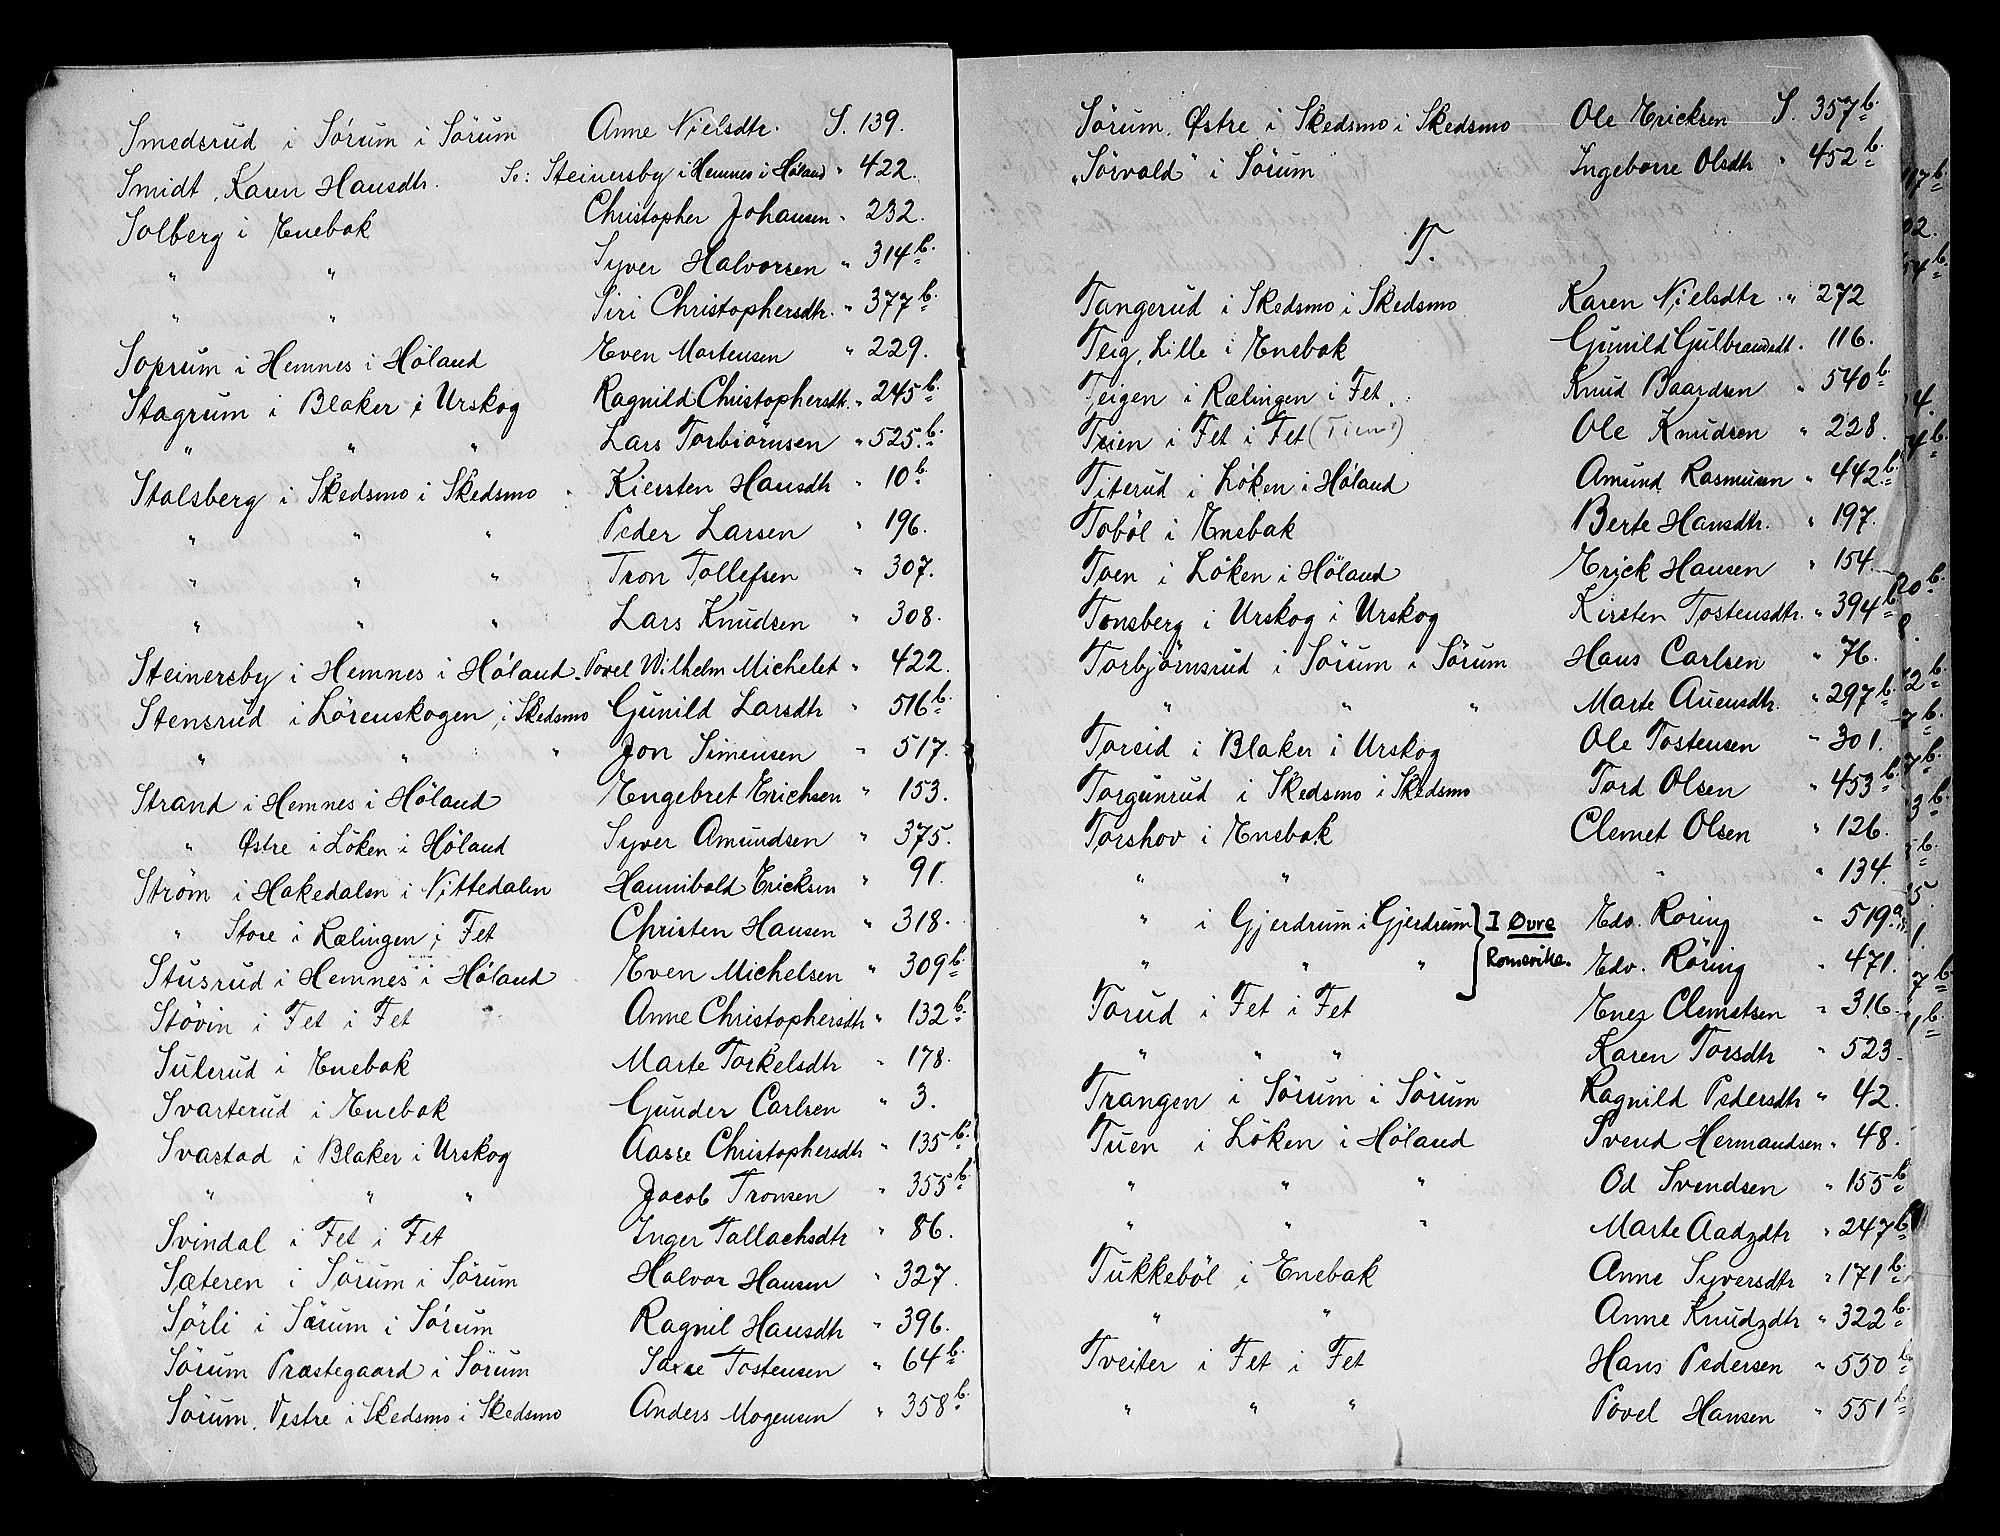 Smedsrud i Sörum i Sörum Anne Nielsdtr. S. 139.
Smidt, Karen Hansdtr. Se: Steinersby i Hemnes i Höland " 422.
Solberg i Enebak Christopher Johansen " 232.
" " Syver Halvorsen " 314b.
" " Siri Christophersdtr. " 377b.
Soprum i Hemnes i Höland Even Mortensen " 229.
Stagrum i Blaker i Urskog Ragnild Christophersdtr. " 245b.
" " " Lars Torbiörnsen " 525b.
Stalsberg i Skedsmo i Skedsmo Kiersten Hansdtr " 10b.
" " " Peder Larsen " 196.
" " " Tron Tollefsen " 307.
" " " Lars Knudsen " 308.
Steinersby i Hemnes i Höland. Povel Wilhelm Michelet " 422.
Stensrud i Lörenskogen i Skedsmo Gunild Larsdtr " 516b.
" " " Jon Simensen " 517.
Strand i Hemnes i Höland Engebret Erichsen " 153.
" Østre i Löken i Höland Syver Amundsen " 375.
Ström i Hakedalen i Nittedalen Hannibald Ericksen " 91.
" Store i Rælingen i Fet Christen Hansen " 318.
Stusrud i Hemnes i Höland Even Michelsen " 309b.
Stövin i Fet i Fet Anne Christophersdtr " 132b.
Sulerud i Enebak Marte Torkelsdtr " 178.
Svarterud i Enebak Gunder Carlsen " 3.
Svartad i Blaker i Urskog Aasse Christophersdtr " 135b.
" " " Jacob Tronsen " 355b.
Svindal i Fet i Fet Inger Tallachsdtr " 86.
Sæteren i Sörum i Sörum Halvor Hansen " 327.
Sörli i Sörum i Sörum Ragnil Hansdtr " 396.
Sörum Præstegaard i Sörum Saxe Tostensen " 64b.
Sörum, Vestre i Skedsmo i Skedsmo Anders Mogensen " 358b.
Sörum, Østre i Skedsmo i Skedsmo Ole Ericksen S. 357b.
"Sörvald" i Sörum Ingeborre Olsdtr " 452b.
T.
Tangerud i Skedsmo i Skedsmo Karen Nielsdtr. " 272
Teig, Lille i Enebak Gunild Gulbrandsdt. 116.
Teigen i Rælingen i Fet. Knud Baardsen " 540b.
Teien i Fet i Fet Ole Knudsen " 228.
Titerud i Löken i Höland Amund Rasmusen " 442b.
Toböl i Enebak Berte Hansdtr. " 197.
Toen i Löken i Höland Erick Hansen " 154.
Tonsberg i Urskog i Urskog Kirsten Tostensdtr. " 394b.
Torbjörnsrud i Sörum i Sörum Hans Carlsen " 76.
" " " Marte Auensdtr. " 297b.
Torsid i Blaker i Urskog Ole Tostensen " 301.
Torgunrud i Skedsmo i Skedsmo Tord Olsen " 453b.
Torshov i Enebak Clemet Olsen " 126.
" " " " 134.
" i Gjerdrum i Gjerdrum } I Øvre Edv. Roring " 519a.
" " " Romerike. Edv. Röring " 471.
Torud i Fet i Fet Ener Clemetsen " 316.
" " " Karen Torsdtr " 523.
Trangen i Sörum i Sörum Ragnild Pedersdtr " 42.
Tuen i Löken i Höland Svend Hermandsen " 48.
" " " Od Svendsen " 155b.
" " " Marte Aadzdtr " 247b.
Tukkeböl i Enebak Anne Syversdtr " 171b.
" " Anne Knudzdtr " 322b.
Tveiter i Fet i Fet Hans Pedersen " 550b.
" " " Povel Hansen " 551b.